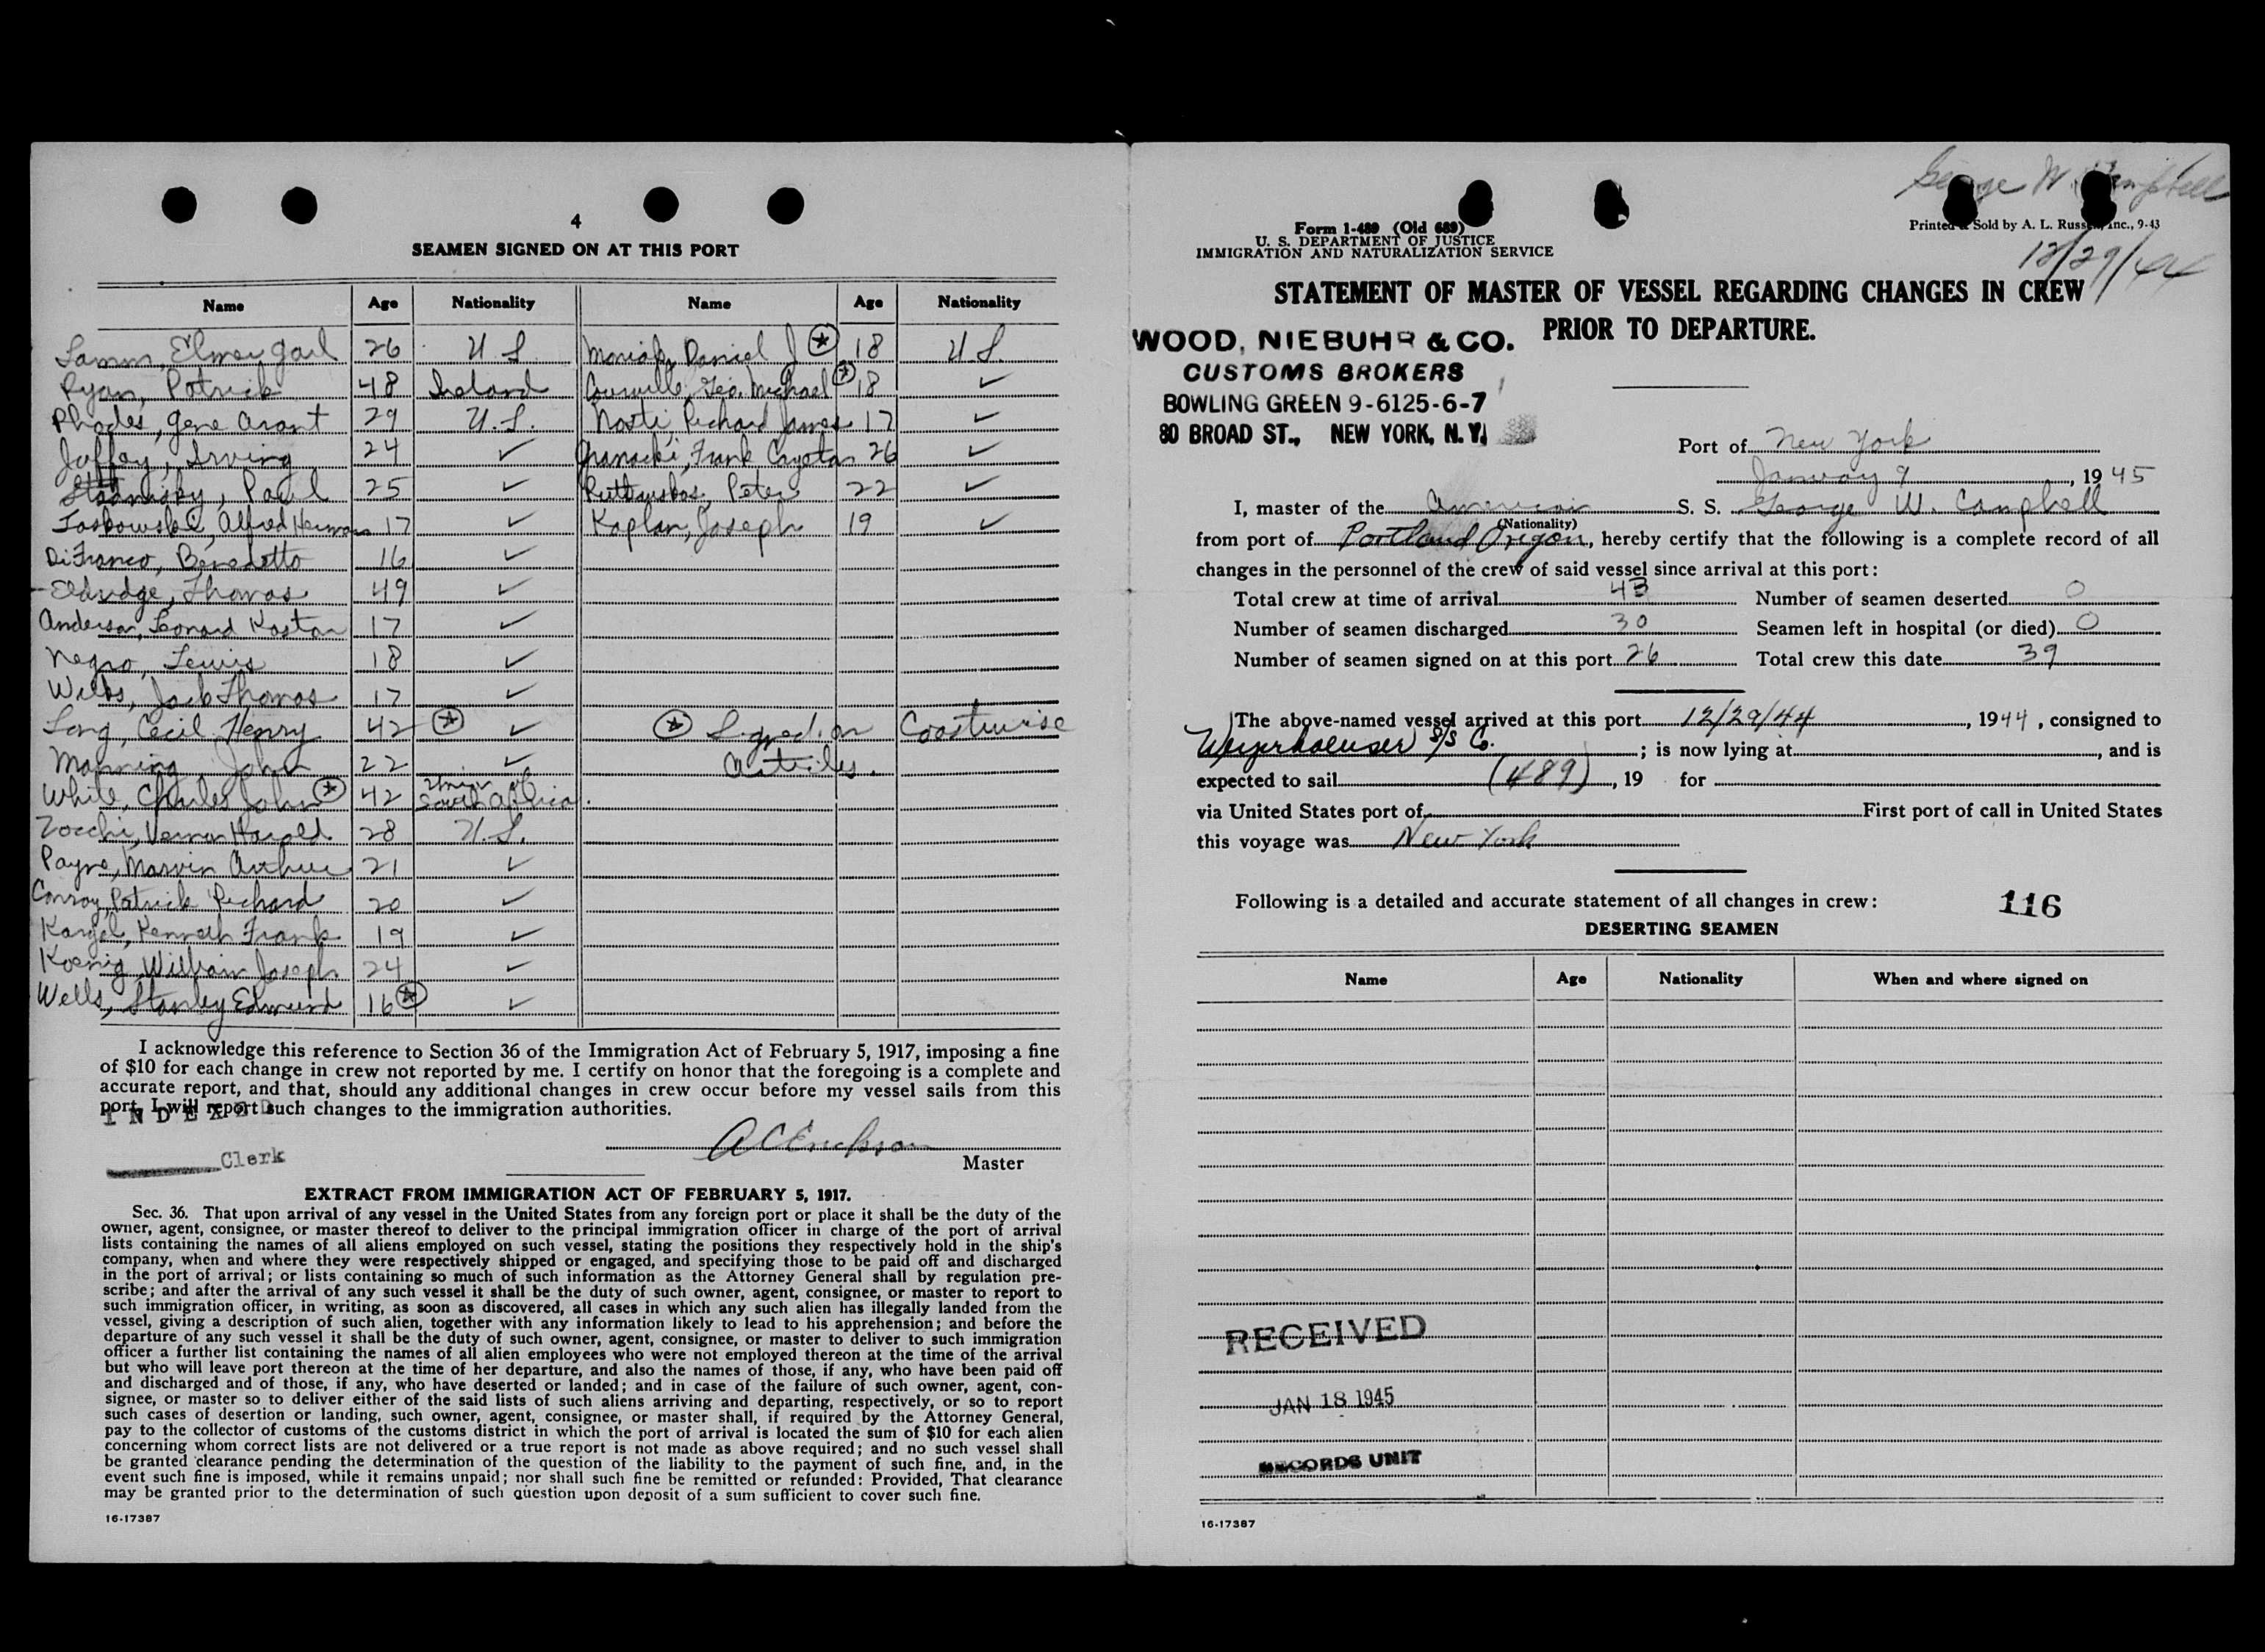 4
SEAMEN SIGNED ON AT THIS PORT
Name Age Nationality Name Age Nationality
Elmer Gail 26 U.S. Daniel J 18 U.S.
Ryan, Patrick 48 Ireland Geo. Michael 18 ✓
Rhodes, Gene Arant 29 U.S. Richard James 17 ✓
Joffey, Irving 24 ✓ Frank 26 ✓
Paul 25 ✓ Peter 22 ✓
Alfred Herman 17 ✓ Kaplan, Joseph 19 ✓
DiFranco, Benedetto 16 ✓
Eldridge, Thomas 49 ✓
Anderson, Leonard 17 ✓
Negro, Lewis 18 ✓
Jack Thomas 17 ✓
Long, Cecil Henry 42 ✓ Signed on Coastwise
Manning John 22 ✓ Articles.
White, Charles John 42 Union of South Africa.
Zocchi, Vernon Harold 28 U.S.
Payne, Marvin Arthur 21 ✓
Conroy, Patrick Richard 20 ✓
Kargel, Kenneth Frank 19 ✓
Koenig, William Joseph 24 ✓
Wells, Stanley Edmund 16 ✓
I acknowledge this reference to Section 36 of the Immigration Act of February 5, 1917, imposing a fine
of $10 for each change in crew not reported by me. I certify on honor that the foregoing is a complete and
accurate report, and that, should any additional changes in crew occur before my vessel sails from this
port, I will report such changes to the immigration authorities.
INDEXED
A C Erickson
Clerk
Master
EXTRACT FROM IMMIGRATION ACT OF FEBRUARY 5, 1917.
Sec. 36. That upon arrival of any vessel in the United States from any foreign port or place it shall be the duty of the
owner, agent, consignee, or master thereof to deliver to the principal immigration officer in charge of the port of arrival
lists containing the names of all aliens employed on such vessel, stating the positions they respectively hold in the ship's
company, when and where they were respectively shipped or engaged, and specifying those to be paid off and discharged
in the port of arrival; or lists containing so much of such information as the Attorney General shall by regulation pre-
scribe; and after the arrival of any such vessel it shall be the duty of such owner, agent, consignee, or master to report to
such immigration officer, in writing, as soon as discovered, all cases in which any such alien has illegally landed from the
vessel, giving a description of such alien, together with any information likely to lead to his apprehension; and before the
departure of any such vessel it shall be the duty of such owner, agent, consignee, or master to deliver to such immigration
officer a further list containing the names of all alien employees who were not employed thereon at the time of the arrival
but who will leave port thereon at the time of her departure, and also the names of those, if any, who have been paid off
and discharged and of those, if any, who have deserted or landed; and in case of the failure of such owner, agent, con-
signee, or master so to deliver either of the said lists of such aliens arriving and departing, respectively, or so to report
such cases of desertion or landing, such owner, agent, consignee, or master shall, if required by the Attorney General,
pay to the collector of customs of the customs district in which the port of arrival is located the sum of $10 for each alien
concerning whom correct lists are not delivered or a true report is not made as above required; and no such vessel shall
be granted clearance pending the determination of the question of the liability to the payment of such fine, and, in the
event such fine is imposed, while it remains unpaid; nor shall such fine be remitted or refunded: Provided, That clearance
may be granted prior to the determination of such question upon deposit of a sum sufficient to cover such fine.
16-17387
George W. Campbell
Form 1-489 (Old 689)
U. S. DEPARTMENT OF JUSTICE
IMMIGRATION AND NATURALIZATION SERVICE
Printed & Sold by A. L. Russell, Inc., 9-43
12/29/44
STATEMENT OF MASTER OF VESSEL REGARDING CHANGES IN CREW
PRIOR TO DEPARTURE.
WOOD, NIEBUHR & CO.
CUSTOMS BROKERS
BOWLING GREEN 9-6125-6-7
80 BROAD ST., NEW YORK, N.Y.
Port of New York
January 9, 1945
I, master of the American S. S. George W. Campbell
(Nationality)
from port of Portland Oregon, hereby certify that the following is a complete record of all
changes in the personnel of the crew of said vessel since arrival at this port:
Total crew at time of arrival 43 Number of seamen deserted 0
Number of seamen discharged 30 Seamen left in hospital (or died) 0
Number of seamen signed on at this port 26 Total crew this date 39
The above-named vessel arrived at this port 12/29/44, 1944, consigned to
Weyerhaeuser S/S Co.; is now lying at, and is
expected to sail (489), 19 for
via United States port of First port of call in United States
this voyage was New York
Following is a detailed and accurate statement of all changes in crew:
116
DESERTING SEAMEN
Name Age Nationality When and where signed on
RECEIVED
JAN 18 1945
RECORDS UNIT
16-17387